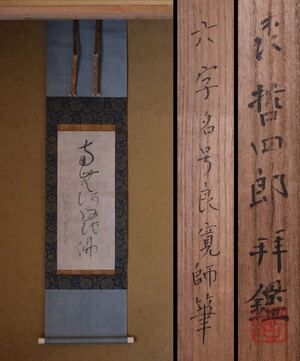 南無阿弥陀佛
六字名号良寛師筆
哲四郎 拝鑑